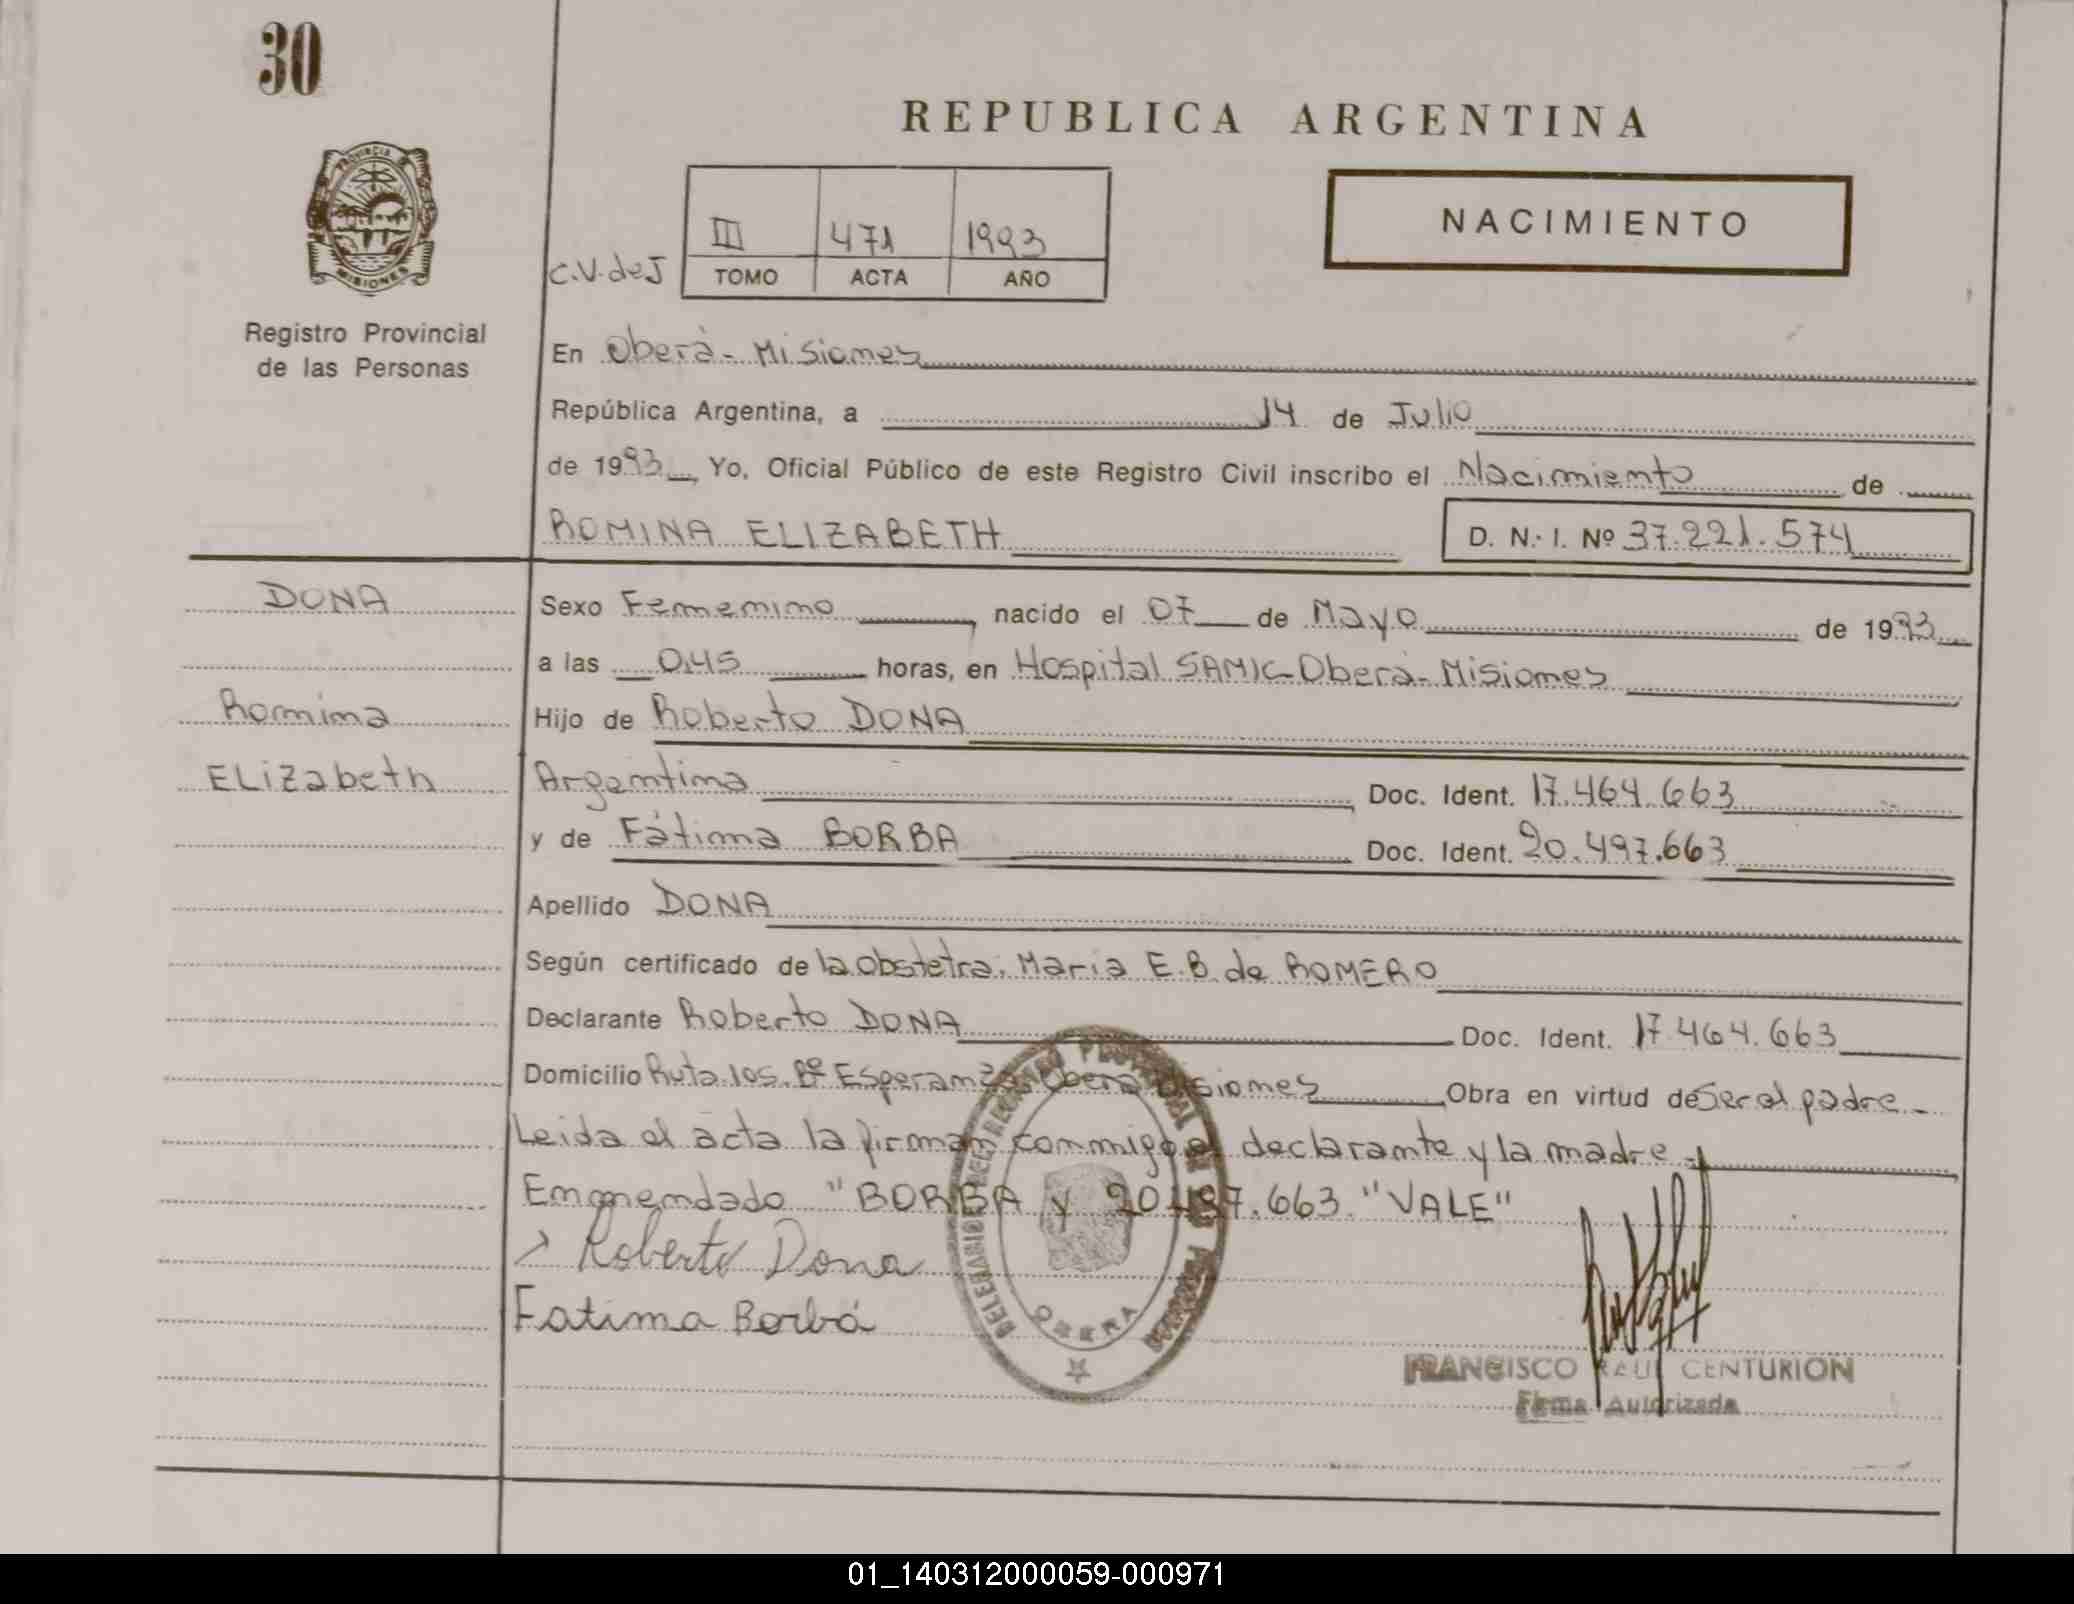 30
REPUBLICA ARGENTINA
PROVINCIA
MISIONES
Registro Provincial
de las Personas
NACIMIENTO
III 471 1993
C.V. de J TOMO ACTA AÑO
En Oberá - Misiones
República Argentina, a 14 de Julio
de 1993, Yo, Oficial Público de este Registro Civil inscribo el Nacimiento de
ROMINA ELIZABETH D. N. I. Nº 37.221.574
DONA
Romina
ELizabeth
Sexo Femenino nacido el 07 de Mayo de 1993
a las 0.45 horas, en Hospital SAMIC-Oberá- Misiones
Hijo de Roberto DONA
Argentina Doc. Ident. 17.464.663
y de Fátima BORBA Doc. Ident. 20.497.663
Apellido DONA
Según certificado de la obstetra. Maria E.B. de ROMERO
Declarante Roberto DONA Doc. Ident. 17.464.663
Domicilio Ruta 105. Bº Esperanza Oberá Misiones Obra en virtud de Ser el padre.-
Leida el acta la firman conmigo el declarante y la madre.-
Enmendado "BORBA y 20.497.663. "VALE"
Roberto Dona
Fatima Borbá
OBERA
FRANCISCO RAUL CENTURION
Firma Autorizada
01_140312000059-000971